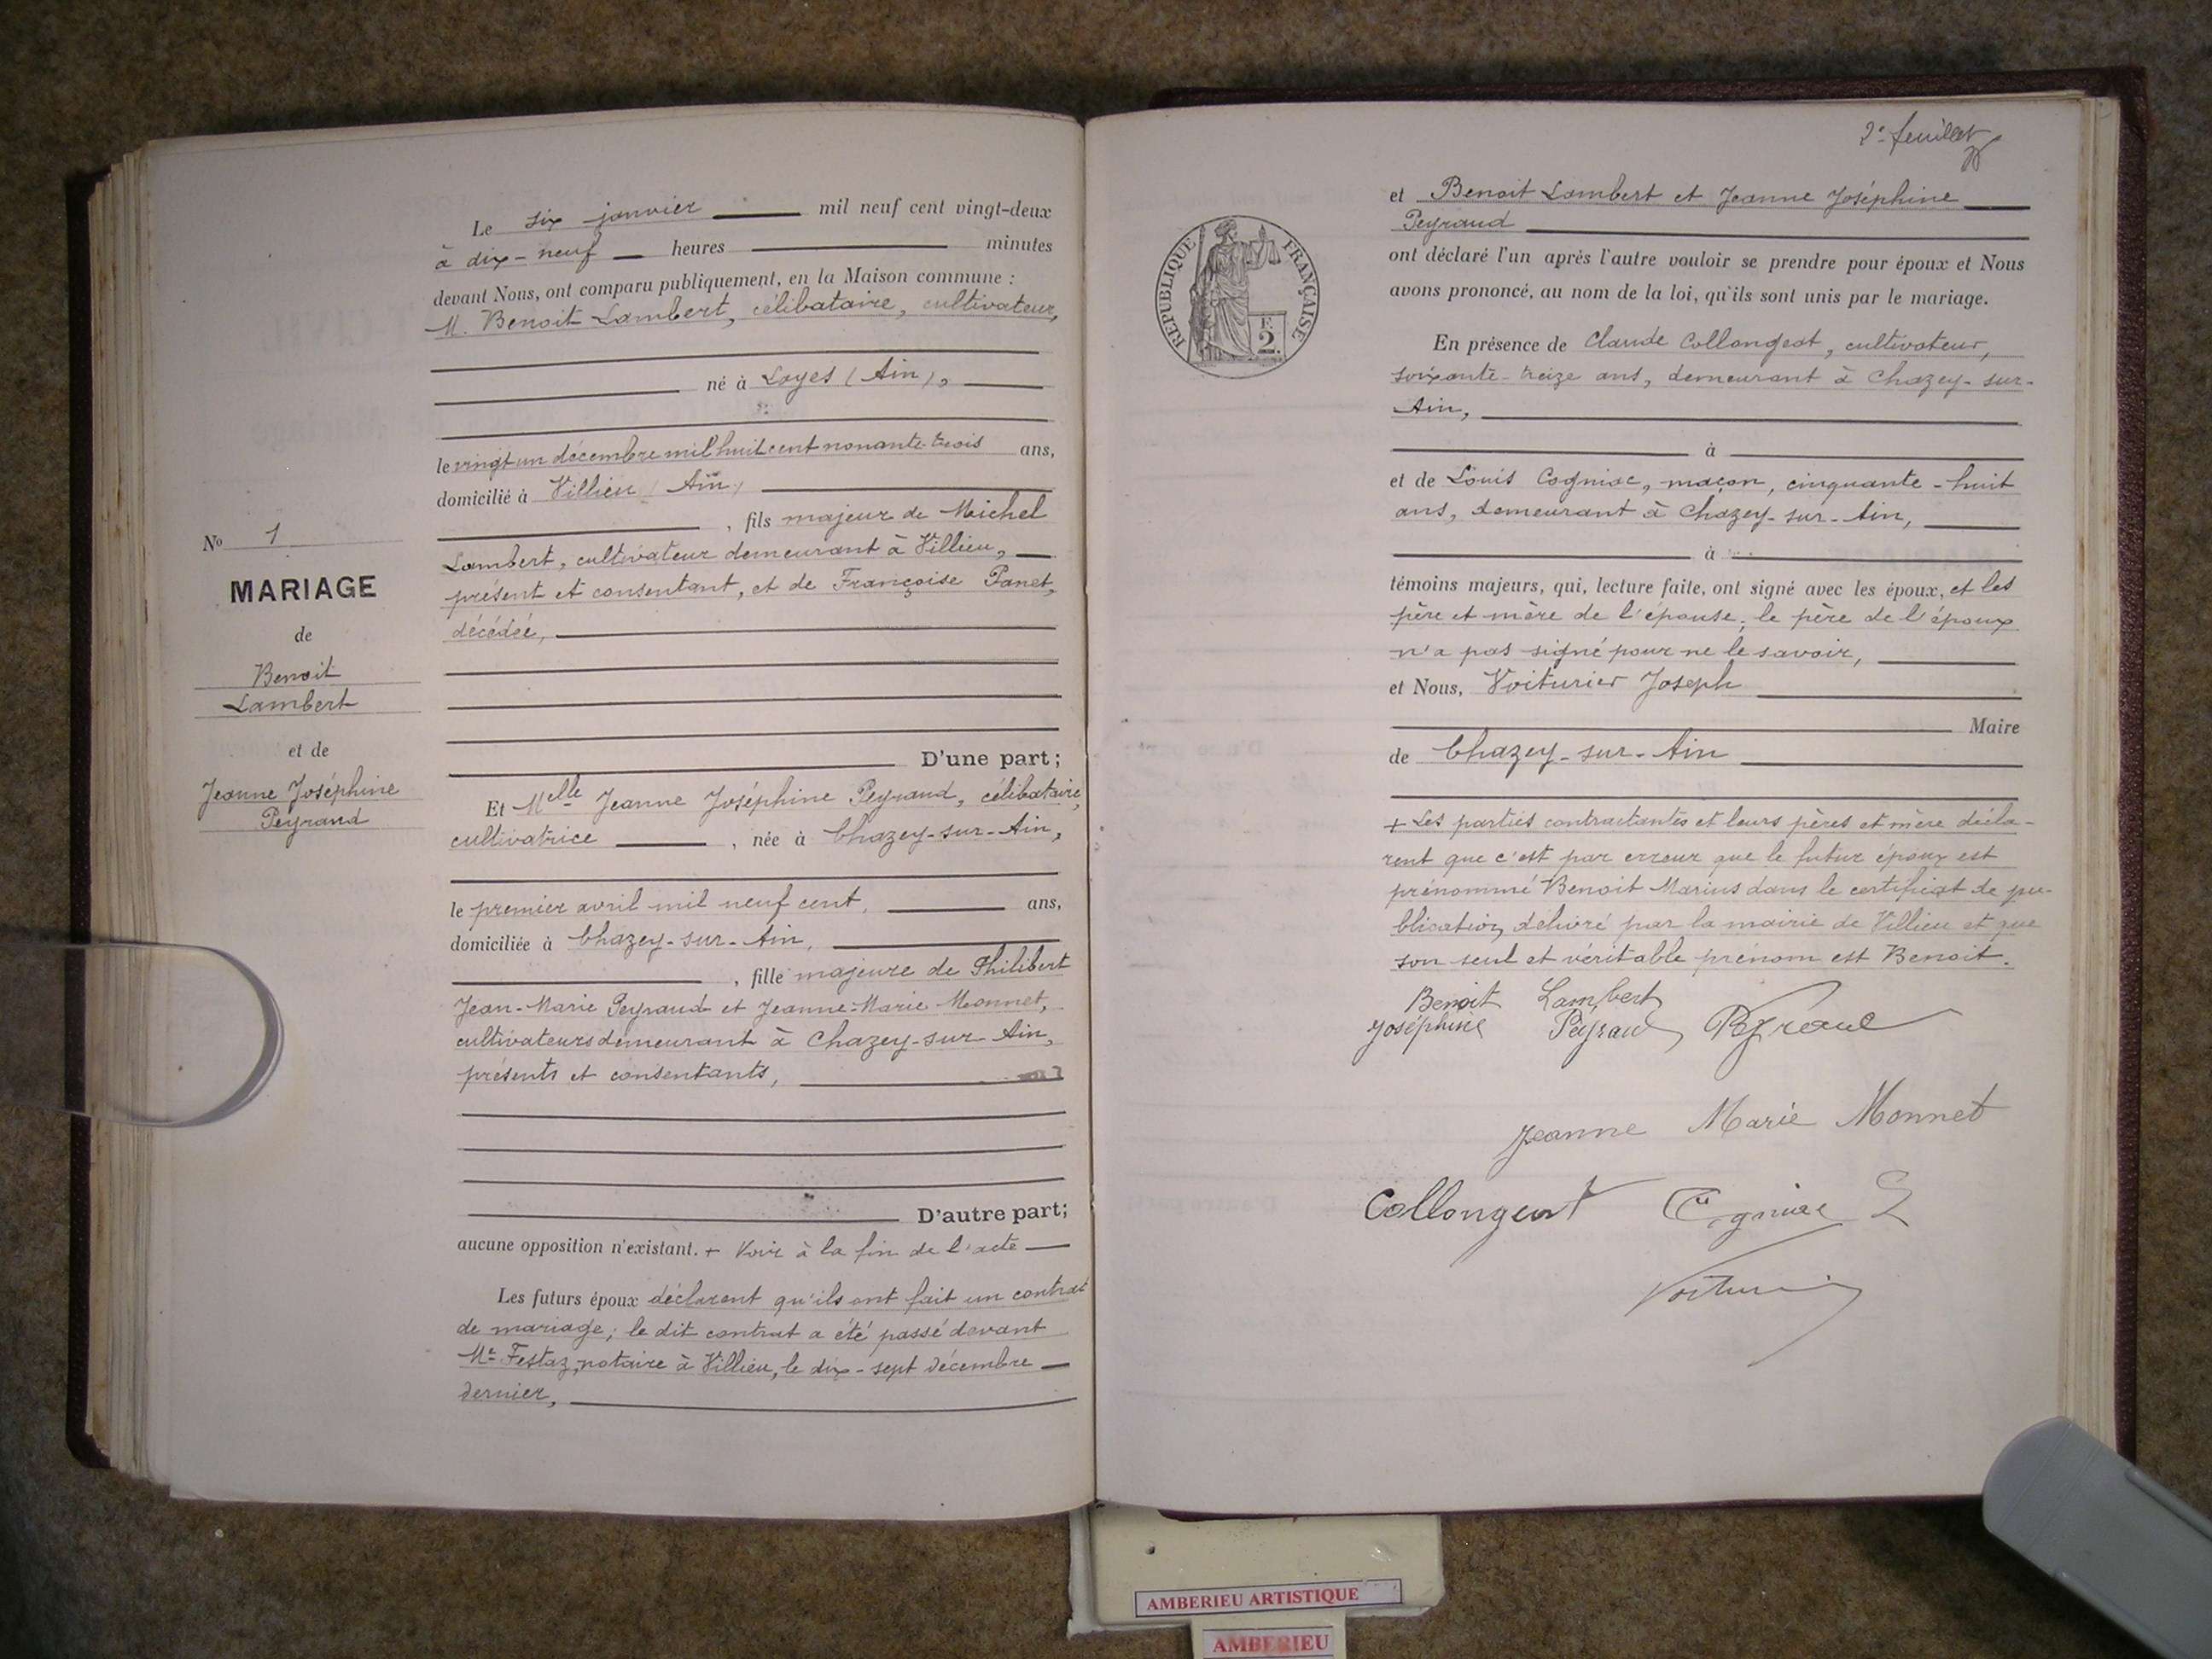 Le six janvier mil neuf cent vingt-deux
à dix-neuf heures minutes
devant Nous, ont comparu publiquement, en la Maison commune :
M. Benoit Lambert, célibataire, cultivateur,
né à Loyes (Ain),
le vingt un décembre mil huit cent nonante-trois ans,
domicilié à Villieu (Ain)
, fils majeur de Michel
Lambert, cultivateur demeurant à Villieu,
présent et consentant, et de Françoise Panet,
décédée,
D'une part;
Et Melle Jeanne Joséphine Peyraud, célibataire,
cultivatrice , née à Chazey-sur-Ain,
le premier avril mil neuf cent, ans,
domiciliée à Chazey-sur-Ain,
, fille majeure de Philibert
Jean-Marie Peyraud et Jeanne-Marie Monnet,
cultivateurs demeurant à Chazey-sur-Ain,
présents et consentants,
D'autre part;
aucune opposition n'existant. + Voir à la fin de l'acte
Les futurs époux déclarent qu'ils ont fait un contrat
de mariage; le dit contrat a été passé devant
Me Festaz, notaire à Villieu, le dix-sept décembre
dernier,
No 1
MARIAGE
de
Benoit
Lambert
et de
Jeanne Joséphine
Peyraud
2e feuillet
REPUBLIQUE FRANÇAISE
F.
2.
et Benoit Lambert et Jeanne Joséphine
Peyraud
ont déclaré l'un après l'autre vouloir se prendre pour époux et Nous
avons prononcé, au nom de la loi, qu'ils sont unis par le mariage.
En présence de Claude Collongeat, cultivateur,
soixante-treize ans, demeurant à Chazey-sur-
Ain,
à
et de Louis Cogniac, maçon, cinquante-huit
ans, demeurant à Chazey-sur-Ain,
à
témoins majeurs, qui, lecture faite, ont signé avec les époux, et les
père et mère de l'épouse; le père de l'époux
n'a pas signé pour ne le savoir,
et Nous, Voiturier Joseph
Maire
de Chazey-sur-Ain
+ Les parties contractantes et leurs pères et mère décla-
rent que c'est par erreur que le futur époux est
prénommé Benoit Marius dans le certificat de pu-
blication, délivré par la mairie de Villieu et que
son seul et véritable prénom est Benoit.
Benoit Lambert
Joséphine Peyraud Peyraud
Jeanne Marie Monnet
Collongeat Cogniac L
Voiturier
AMBERIEU ARTISTIQUE
AMBERIEU